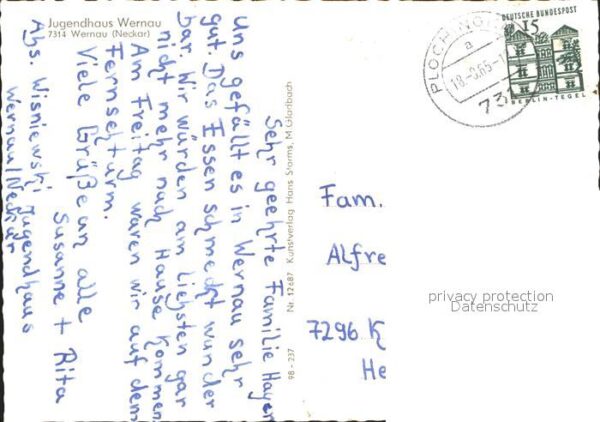 Jugendhaus Wernau
7314 Wernau (Neckar)
Sehr geehrte Familie Hayer
uns gefällt es in Wernau sehr
gut. Das Essen schmeckt wunder
bar. Wir würden am liebsten gar
nicht mehr nach Hause kommen
Am Freitag waren wir auf dem
Fernsehturm.
Viele Grüße an alle
Susanne + Rita
Abs. Wisniewski Jugendhaus
Wernau/Neckar
98 - 237 Nr. 12687 Kunstverlag Hans Storms, M.Gladbach
PLOCHING
a
18.-9.65-1
73
DEUTSCHE BUNDESPOST
15
BERLIN-TEGEL
Fam.
Alfre
7296 K
He
privacy protection
Datenschutz